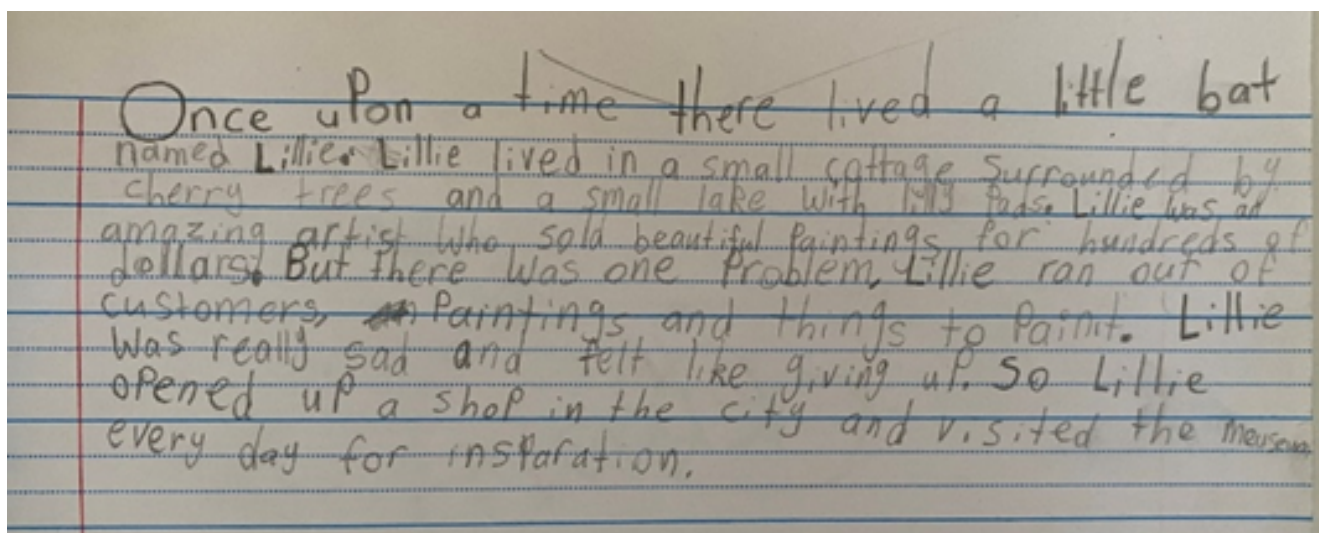 Once upon a time there lived a little bat
named Lillie. Lillie lived in a small cottage surrounded by
cherry trees and a small lake with lilly pads. Lillie was an
amazing artist who sold beautiful paintings for hundreds of
dollars. But there was one problem, Lillie ran out of
customers, paintings and things to paint. Lillie
was really sad and felt like giving up. So Lillie
opened up a shop in the city and visited the
every day for insparation.